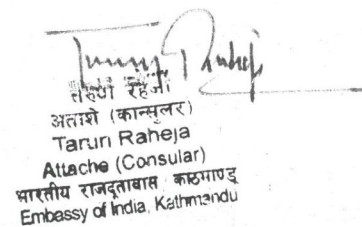 तरुणी रहेजा
अताशे (कान्सुलर)
Taruri Raheja
Attache (Consular)
भारतीय राजदूतावास काठमाण्डू
Embassy of India, Kathmandu